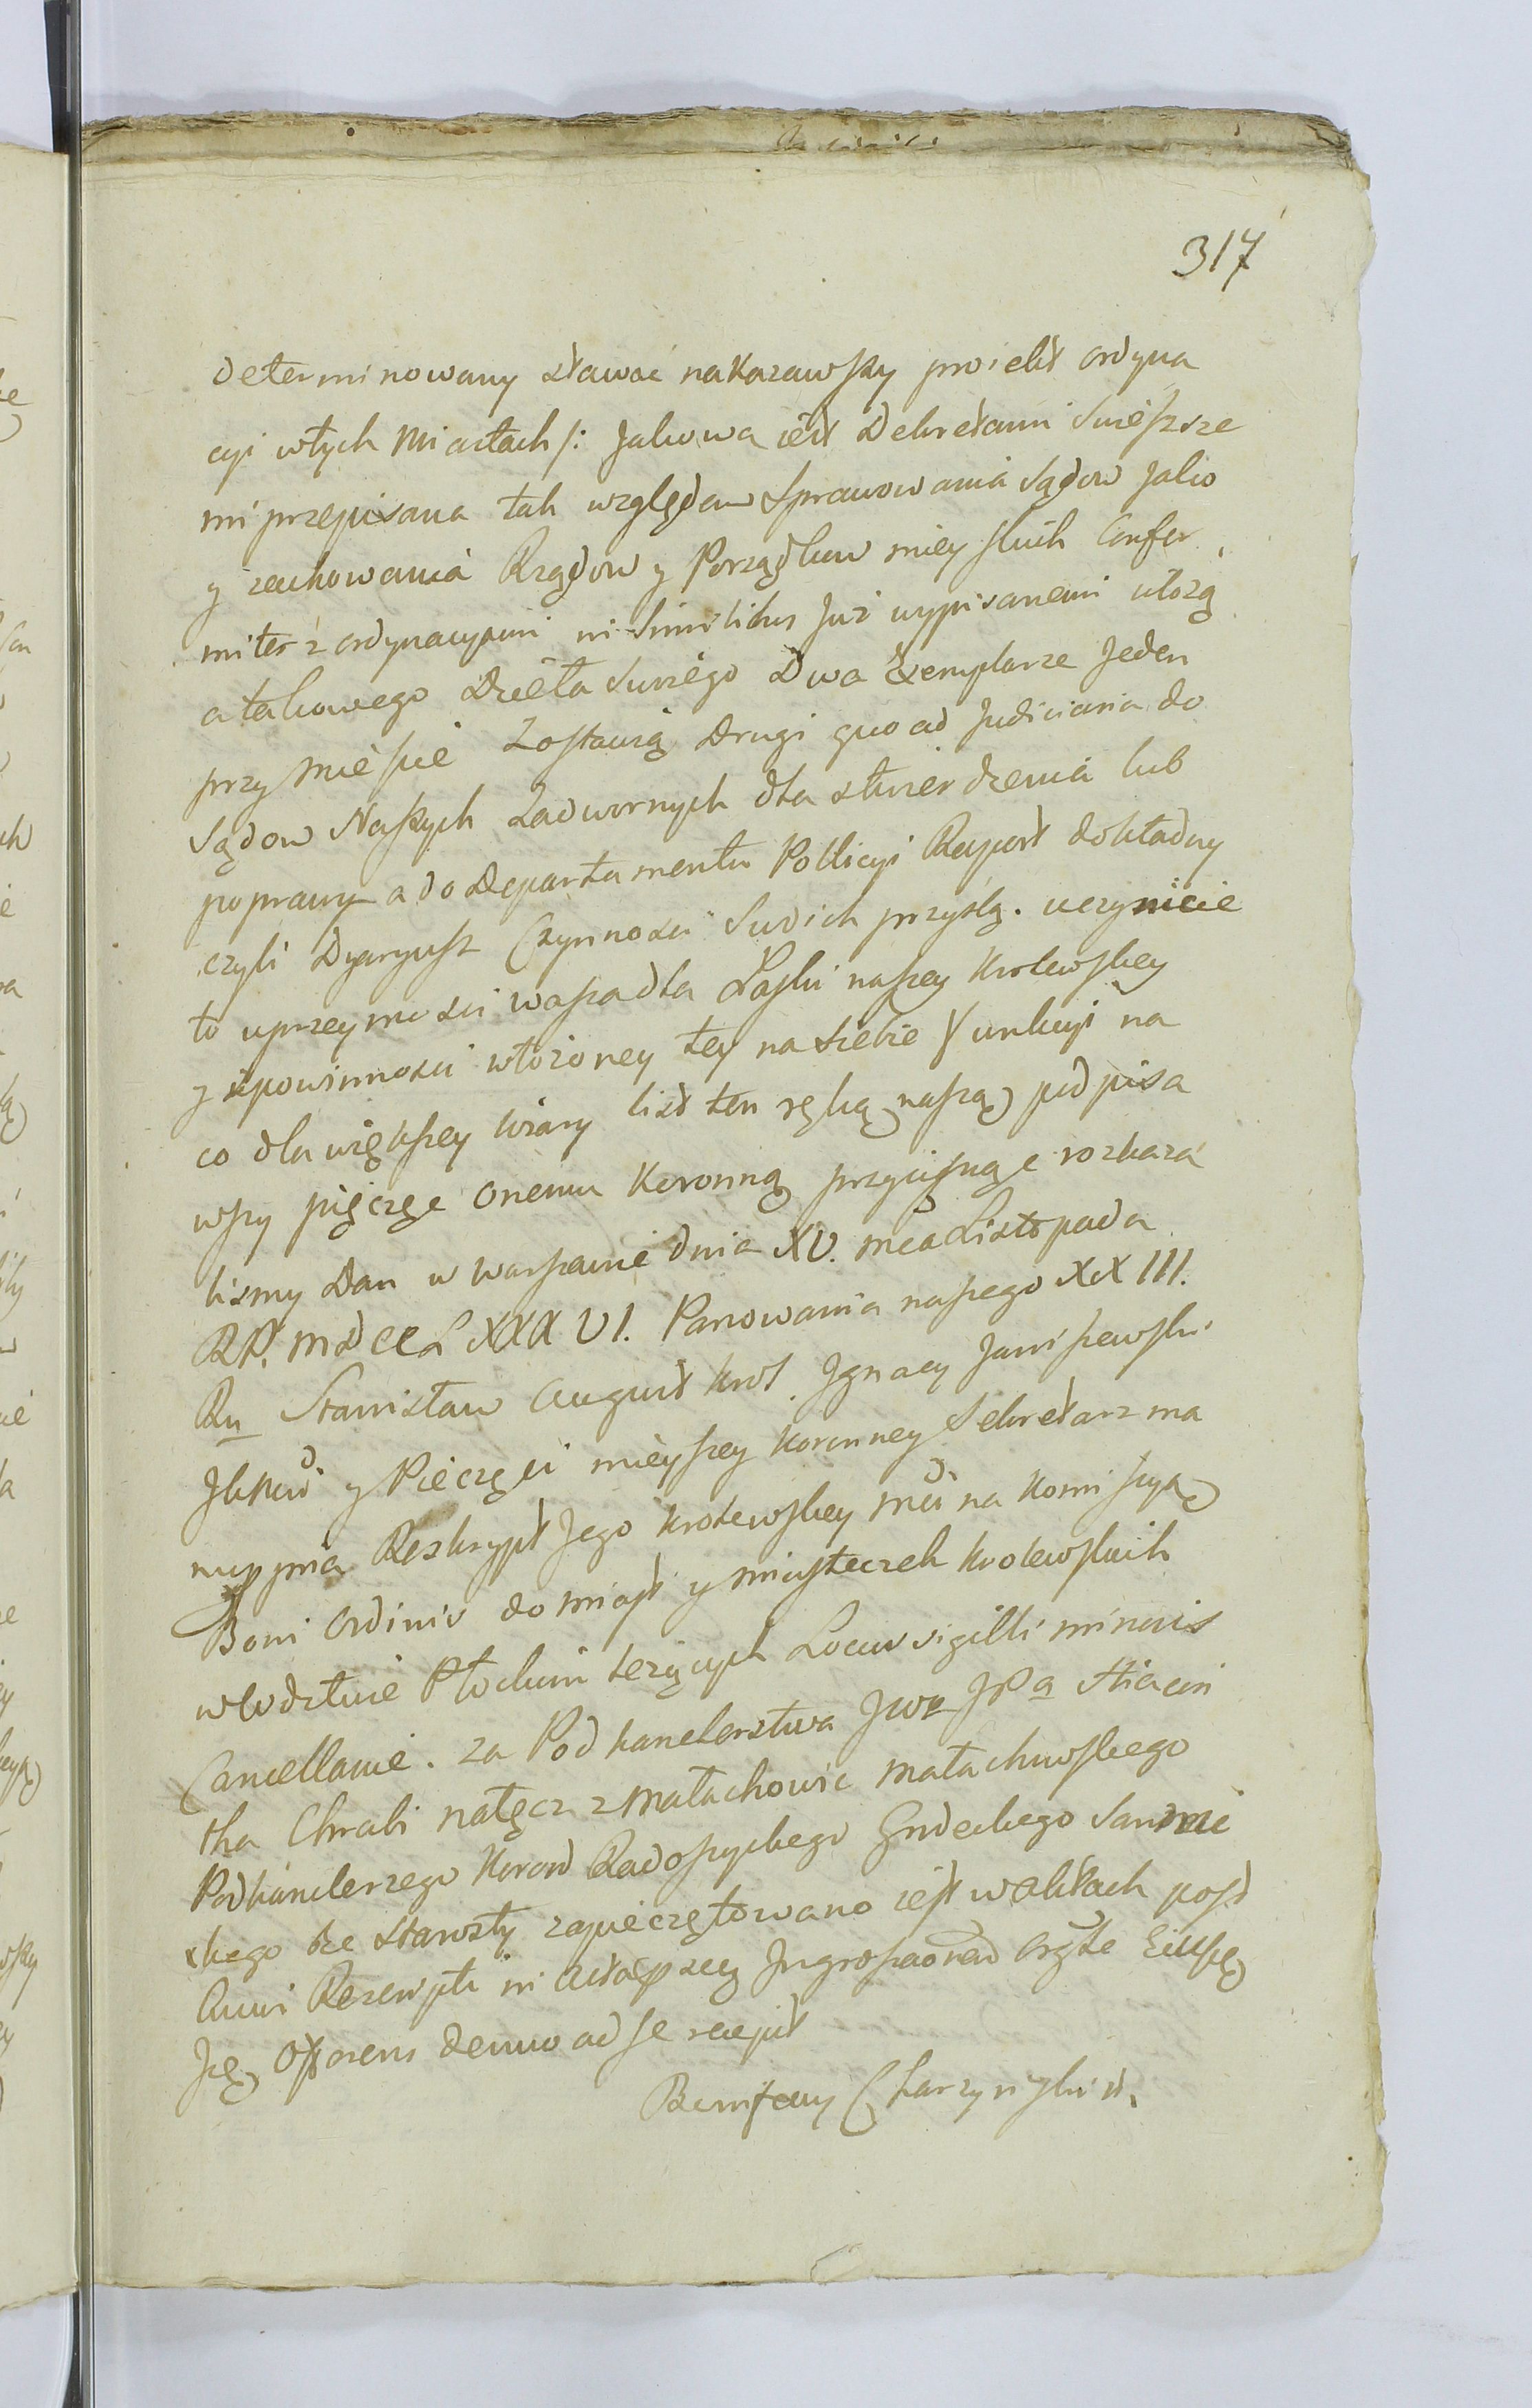 317
determinowany stawać nakazawszy projekt ordyna
cyi wtych Miastach /: Jakowa jest Dekretami Swieższe
mi przepisana tak względem Sprawowania Sądow Jako
y zachowania Rządow y Porządkow mieyskich Confor
miter z ordynacyami in Similibus Już wypisanemi ułożą
a takowego dzieła Swoiego Dwa Exemplarze Jeden
przy Mieście Zostawią Drugi quoad Judiciaria do
Sądow Naszych Zadwornych dla stwierdzenia lub
poprawy a do Departamentu Policyi Raport dokładny
czyli Dyaryusz Czynności Swoich przyślą. uczynicie
to uprzeymości wasza dla Łaski naszey Krolewskiey
y zpowinności włożoney tey na siebie Funkcyi na
co dla większey wiary list ten ręką naszą podpisa
wszy pięczęć onemu Koronną przycisnąć rozkaza
lismy Dan w Warszawie dnia XV. mca Listopada
RP. MDCCLXXXVI. Panowania naszego XXIII.
Ru Stanisław August Krol. Ignacy Janiszewski
JKMci y Pieczęci mnieyszey Koronney Sekretarz ma
nu ppria Reskrypt Jego Krolewskiey Mci na Komissyą
Boni Ordinis do miast y miasteczek Krolewskich
wWdztwie Płockim leżących Locus sigilli minoris
Cancellarie. za Podkanclerstwa JWo JPa Hiacin
tha Chrabi Nałęcz z Małachowic Małachowskiego
Podkanclerzego Koron Radoszyckiego Grodeckiego Sandomie
skiego etc Starosty zapieczętowano jest w aktach post
Cuius Rescripti in Acta psen Ingrossaonem Orgle Eiusdem
Idem Offerens denuo ad se recepit
Bonifacy Charzyński